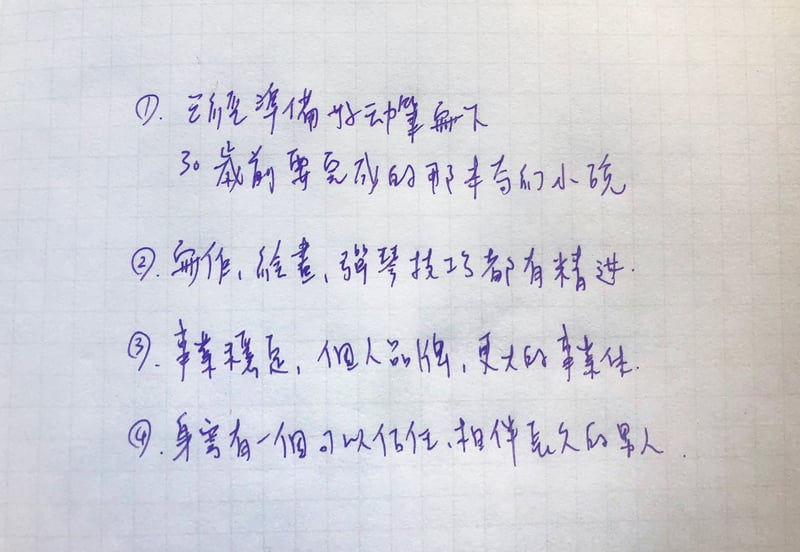 ①. 已經準備好动筆寫下
30歲前要完成的那本奇幻小說
②. 寫作、繪畫、彈琴技巧都有精进.
③. 事業穩定, 個人品牌, 更大的事業体.
④. 身旁有一個可以信任、相伴長久的男人.